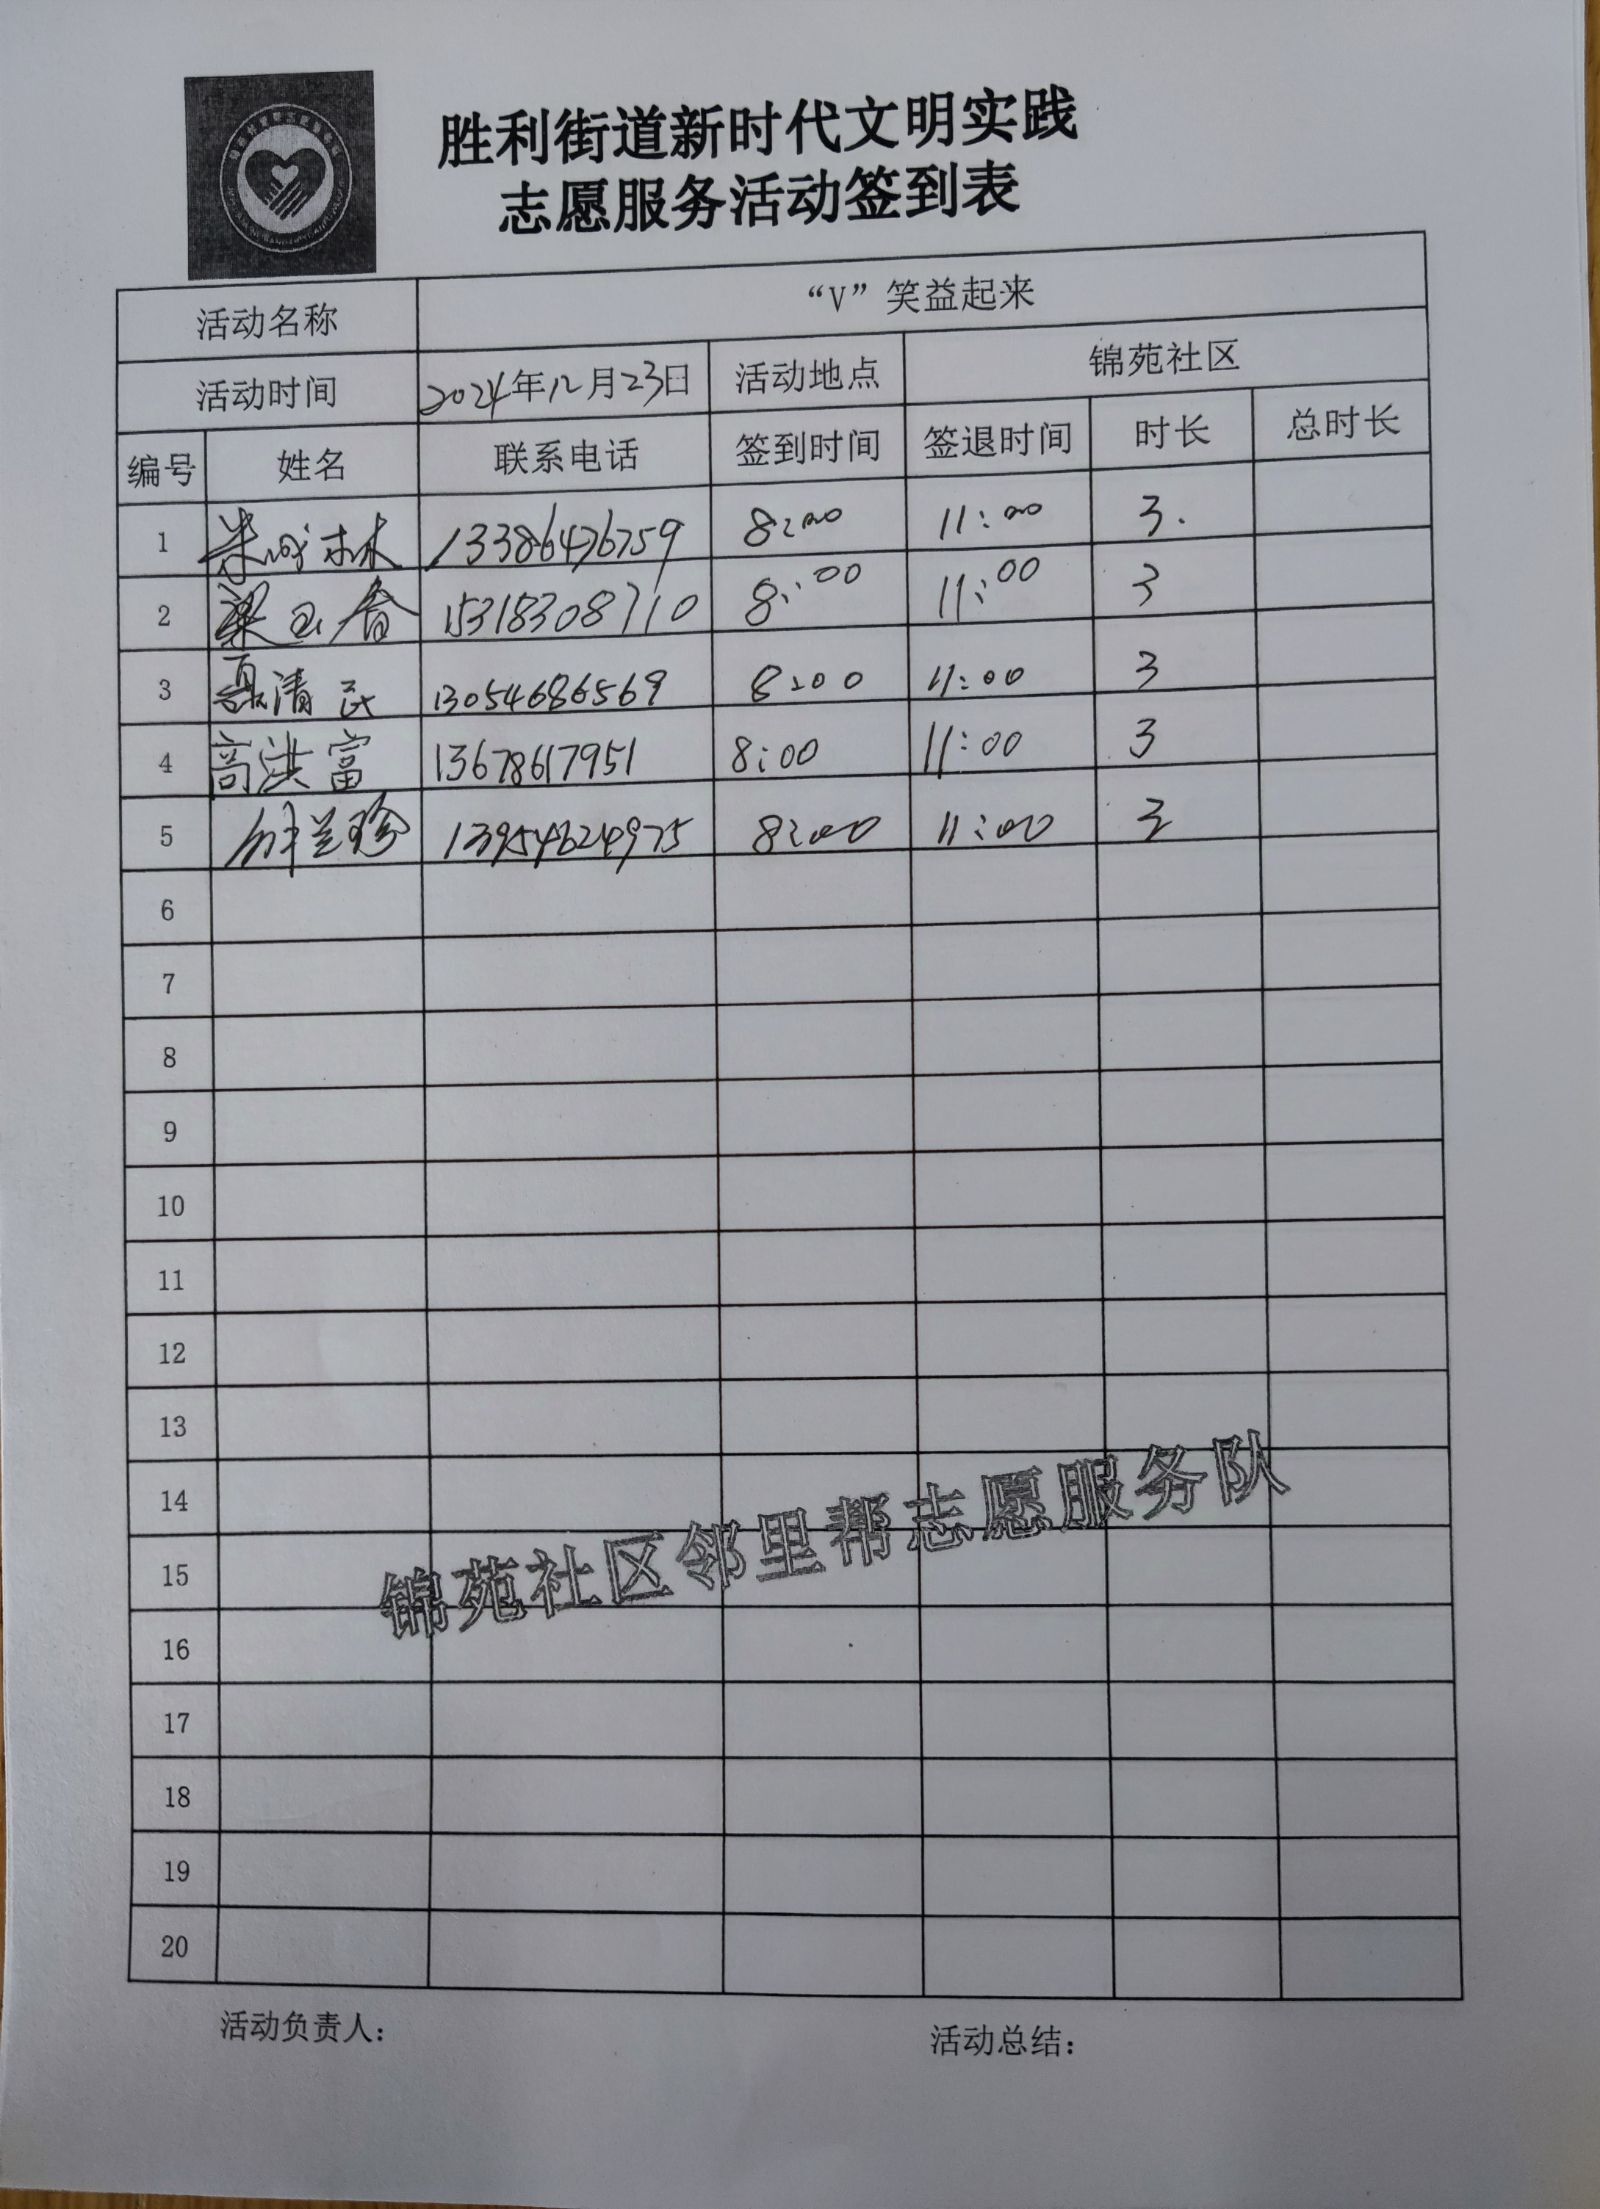 胜利街道新时代文明实践
志愿服务活动签到表
活动名称 “V”笑益起来
活动时间 2024年12月23日 活动地点 锦苑社区
编号 姓名 联系电话 签到时间 签退时间 时长 总时长
1 13386476759 8:00 11:00 3.
2 梁玉春 15318308710 8:00 11:00 3
3 聂清民 13054686569 8:00 11:00 3
4 高洪富 13678617951 8:00 11:00 3
5 13954624975 8:00 11:00 3
6
7
8
9
10
11
12
13
14
15
16
17
18
19
20
锦苑社区邻里帮志愿服务队
活动负责人: 活动总结: